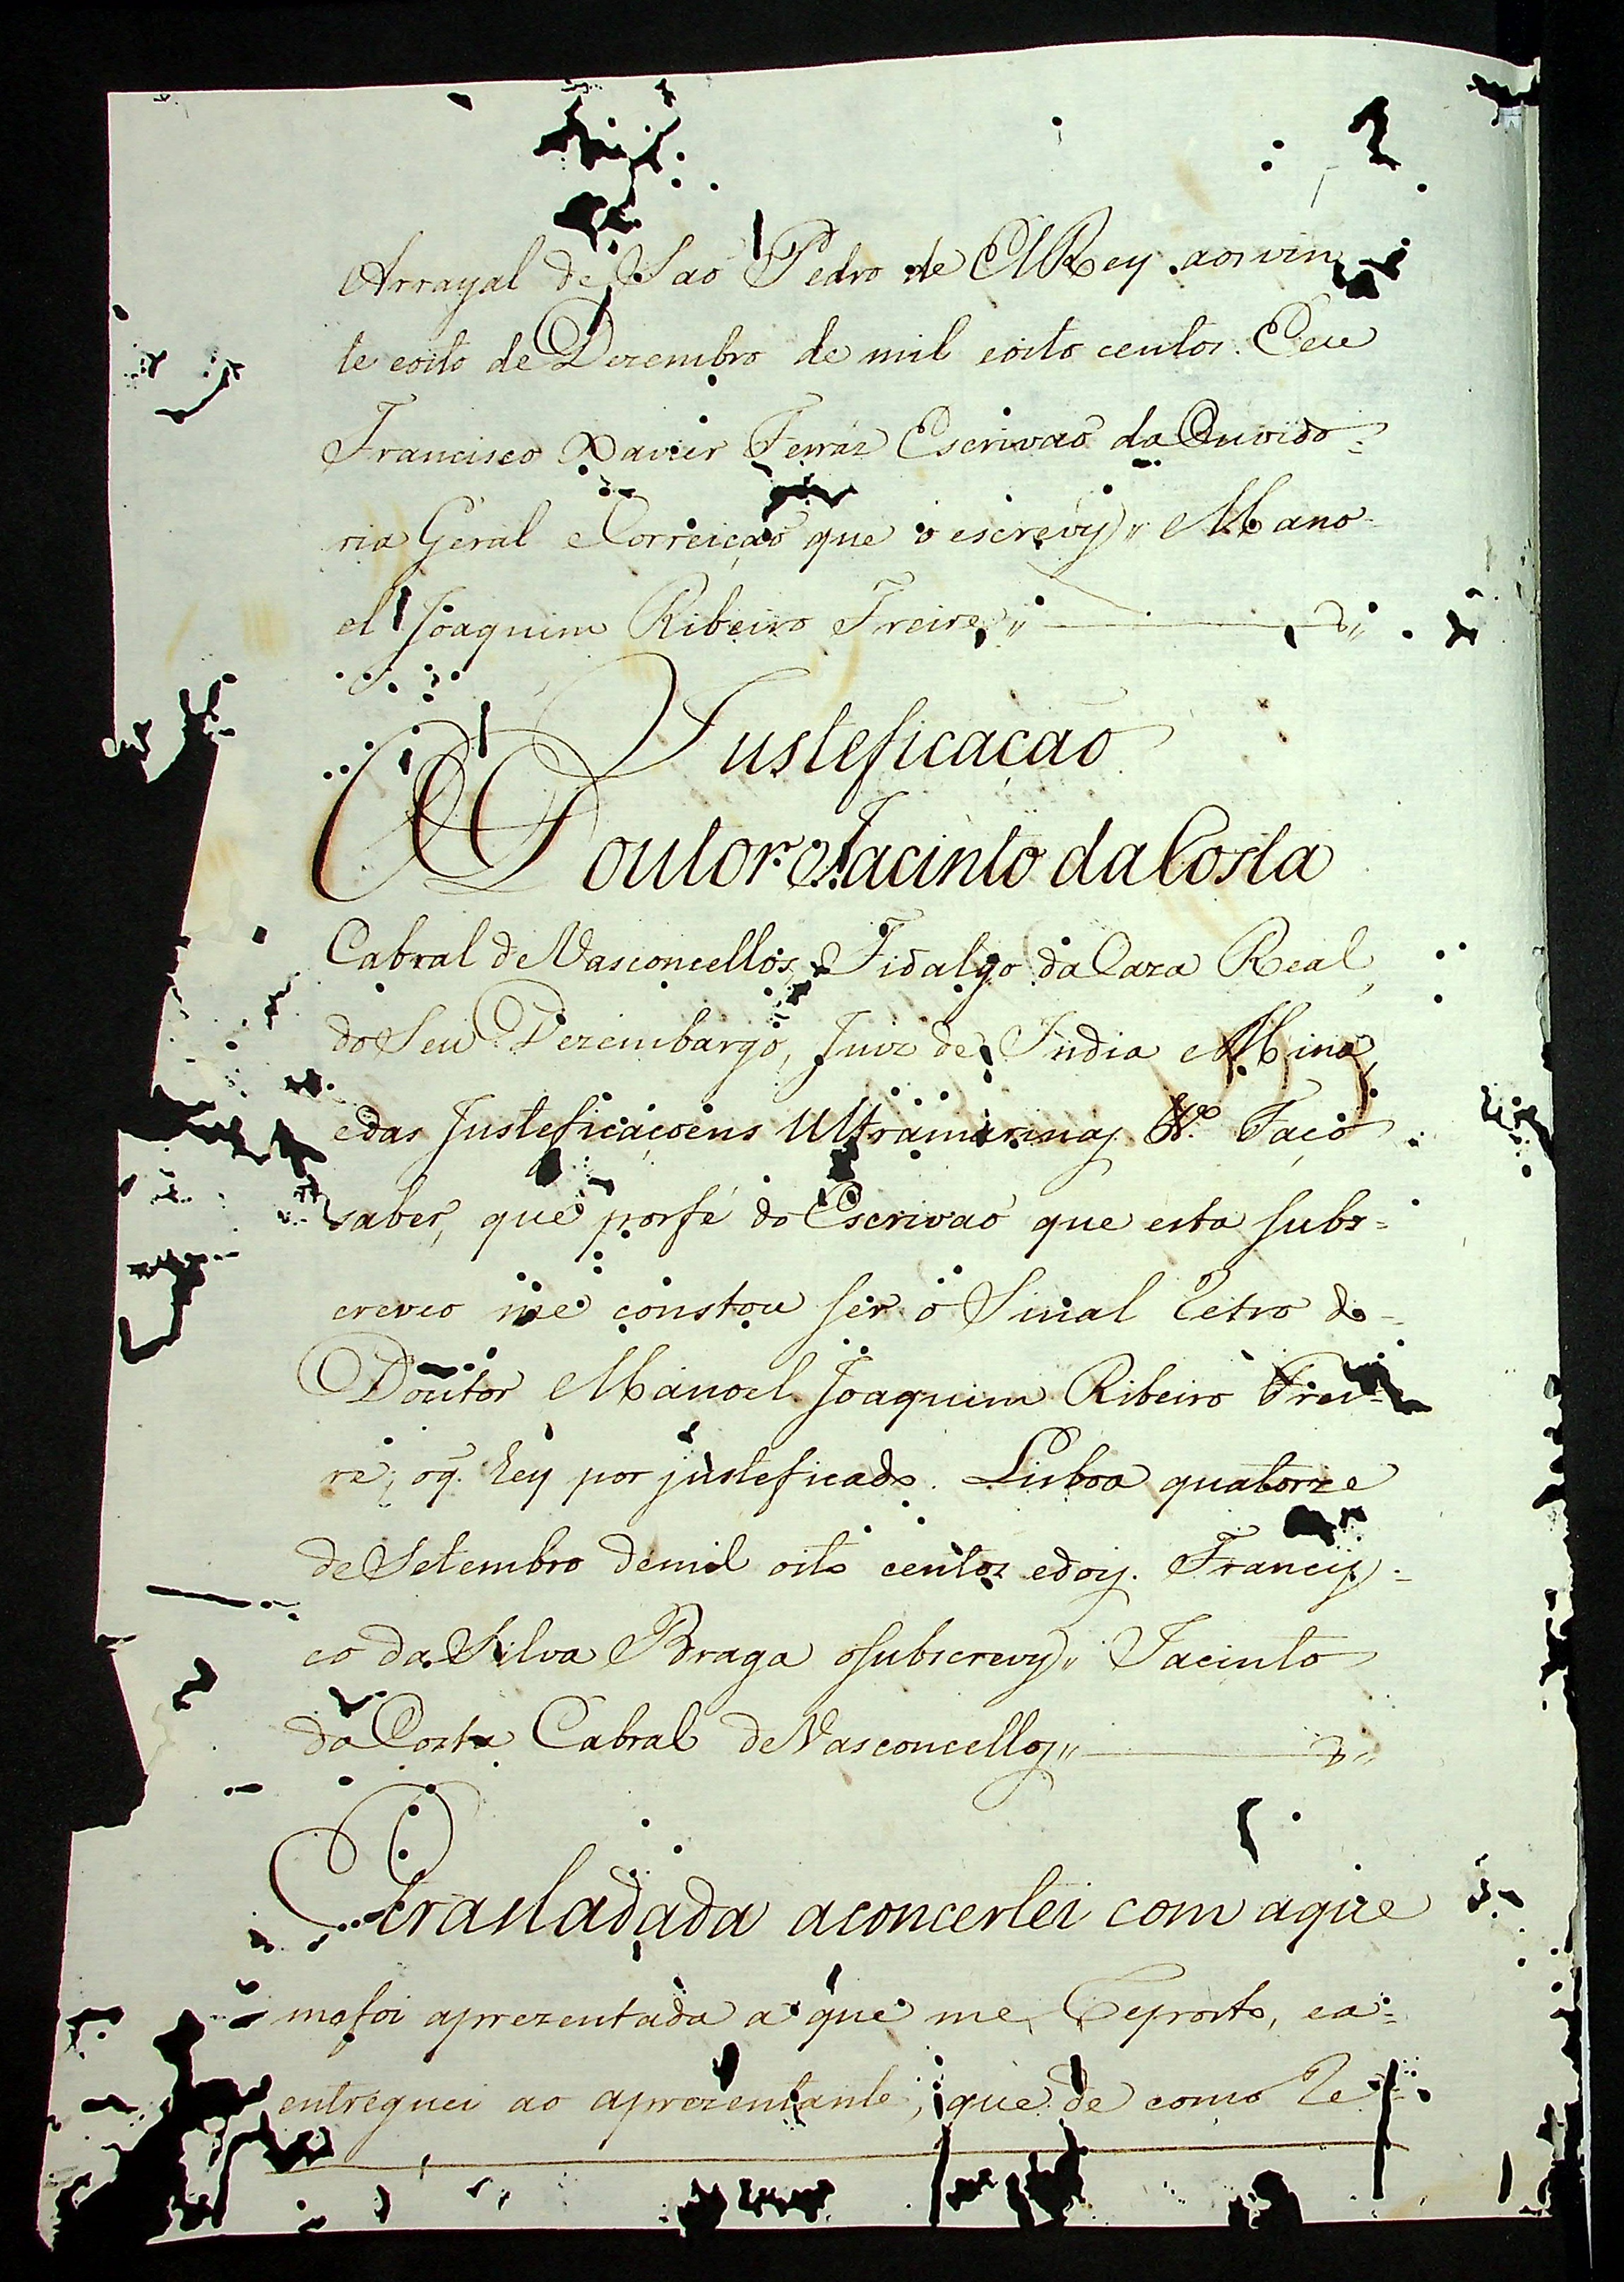 Arrayal de Saó Pedro de ElRey aos vin
te eoito de Dezembro de mil eoito centos. Eeu
Francisco Xavier Ferráz Escrivaó da Ouvido=
ria Geral eCorreiçaó que o escrevy,, Mano-
el Joaquim Ribeiro Freire,,
Justeficaçaó
O Doutor Jacinto da Costa
Cabral de Vasconcellos, Fidalgo da Caza Real,
do Seu Dezembargo, Juiz de India eMina,
edas Justeficaçoens Ultramarinas &ª. Faço
saber, que porfé do Escrivaó que esta subs=
creveo me constou ser o Sinal retro do=
Doutor Manoel Joaquim Ribeiro Frei=
re, oq. hey por justeficado. Lisboa quatorze
de Setembro demil oito centos edois. Francis=
co da Silva Braga osubscrevy,, Jacinto
da Costa Cabral de Vasconcellos,,
E trasladada aconcertei com aque
mefoi aprezentada a que me Reporto, ea=
entreguei ao aprezentante, que de como re=